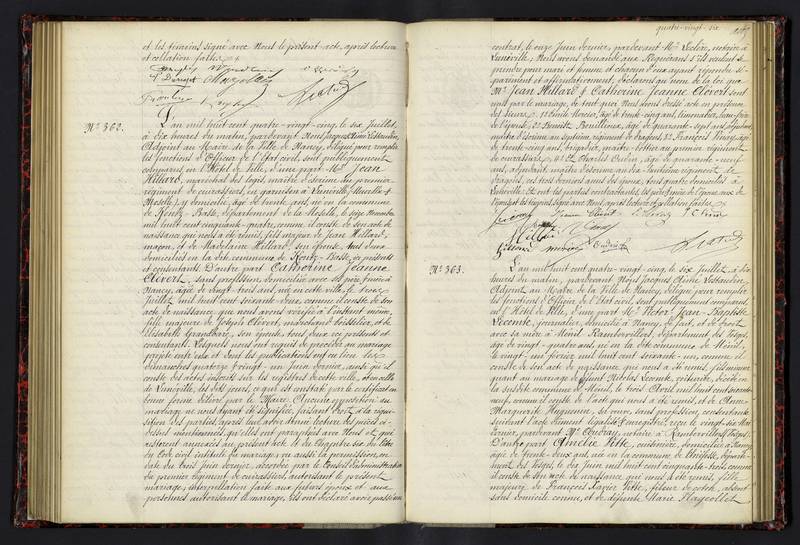 et les témoins signé avec Nous le présent acte, après lecture
et collation faites.
Nº 362.
L'an mil huit cent quatre-vingt-cinq, le six Juillet,
à dix heures du matin, pardevant Nous Jacques Aimé
Adjoint au Maire de la Ville de Nancy, délégué pour remplir
les fonctions d'Officier de l'Etat civil, sont publiquement
comparus en l'Hôtel de Ville, d'une part Mr Jean
Hillard, maréchal des logis, maître d'escrime au premier
régiment de cuirassiers, en garnison à Lunéville (Meurthe &
Moselle) y domicilié, âgé de trente ans, né en la commune
de Kontz-Basse, département de la Moselle, le seize Novembre
mil huit cent cinquante-quatre, comme il conste de son acte de
naissance qui nous a été remis, fils majeur de Jean Hillard,
maçon, et de Madelaine Hillard, son épouse, tous deux
domiciliés en la dite commune de Kontz-Basse, ici présents
et consentants. D'autre part Catherine Jeanne
Clévert, sans profession, domiciliée avec ses père & mère à
Nancy, âgée de vingt-trois ans, née en cette ville, le trois
Juillet mil huit cent soixante-deux, comme il conste de son
acte de naissance, que nous avons vérifié à l'instant même,
fille majeure de Joseph Clévert, marchand boisselier, et de
Elisabeth Grandhair, son épouse, tous deux ici présents et
consentants. Lesquels nous ont requis de procéder au mariage
projeté entre eux et dont les publications ont eu lieu les
dimanches quatorze & vingt-un Juin dernier, ainsi qu'il
conste des actes inscrits sur les registres de cette ville, et en celle
de Lunéville, les dits jours, ce qui est constaté par le certificat en
bonne forme délivré par le Maire. Aucune opposition au
mariage ne nous ayant été signifiée, faisant droit à la réqui-
sition des parties, après leur avoir donné lecture des pièces ci-
dessus mentionnées, qu'elles ont paraphées avec Nous et qui
resteront annexées au présent acte, & du Chapitre six du titre
du Code civil intitulé du mariage; vu aussi la permission en
date du trois Juin dernier, accordée par le Conseil d'administration
du premier régiment de cuirassiers, autorisant le présent
mariage, interpellation faite aux futurs époux et aux
personnes autorisant le mariage, ils ont déclaré avoir passé un
quatre-vingt-six
contrat, le onze Juin dernier, pardevant Me Leclère, notaire à
Lunéville. Nous avons demandé aux Requérants s'ils veulent se
prendre pour mari et femme, et chacun d'eux ayant répondu sé-
parément et affirmativement, déclarons au nom de la loi que
Mr Jean Hillard & Catherine Jeanne Clévert sont
unis par le mariage, de tout quoi Nous avons dressé acte en présence
des sieurs 1º Emile Mercio, âgé de trente-cinq ans, limonadier, beau-frère
de l'épouse, 2º Bouillenne, âgé de quarante-sept ans,
maître d'escrime au régiment de dragons, 3º François
de trente-cinq ans, brigadier, maître-bottier au premier régiment
de cuirassiers, & 4º Charles Cuén, âgé de quarante-neuf
ans, adjudant, maître d'escrime au régiment de
dragons, ces trois derniers amis des époux, tous quatre domiciliés à
Lunéville. Et ont les parties contractantes, les père & mère de l'époux, ceux de
l'épouse et les témoins signé avec Nous, après lecture et collation faites.
Nº 363.
L'an mil huit cent quatre-vingt-cinq, le six Juillet, à dix
heures du matin, pardevant Nous Jacques Aimé
Adjoint au Maire de la Ville de Nancy, délégué pour remplir
les fonctions d'Officier de l'Etat civil, sont publiquement comparus,
en l'Hôtel de Ville, d'une part Mr Victor Jean-Baptiste
Lecomte, journalier, domicilié à Nancy, de fait, et de droit
avec sa mère à Ménil, Rambervillers, département des Vosges,
âgé de vingt-quatre ans, né en la dite commune de Ménil,
le vingt-un février mil huit cent soixante-un, comme il
conste de son acte de naissance qui nous a été remis, fils mineur
quant au mariage de défunt Nicolas Lecomte, voiturier, décédé en
la susdite commune, le trois Avril mil huit cent soixante-
neuf, comme il conste de l'acte qui nous a été remis, et de Anne
Marguerite Huguenin, sa veuve, sans profession, consentante
suivant l'acte dûment légalisé & enregistré, reçu le vingt-six Mai
dernier, pardevant Me Coudray, notaire à Rambervillers (Vosges).
D'autre part Amélie Pitte, cuisinière, domiciliée à Nancy,
âgée de trente-deux ans, née en la commune de départe-
ment des Vosges, le dix Juin mil huit cent cinquante-trois, comme
il conste de son acte de naissance qui nous a été remis, fille
majeure de François Xavier Pitte, fileur de coton, absent
sans domicile connu, et de défunte Marie